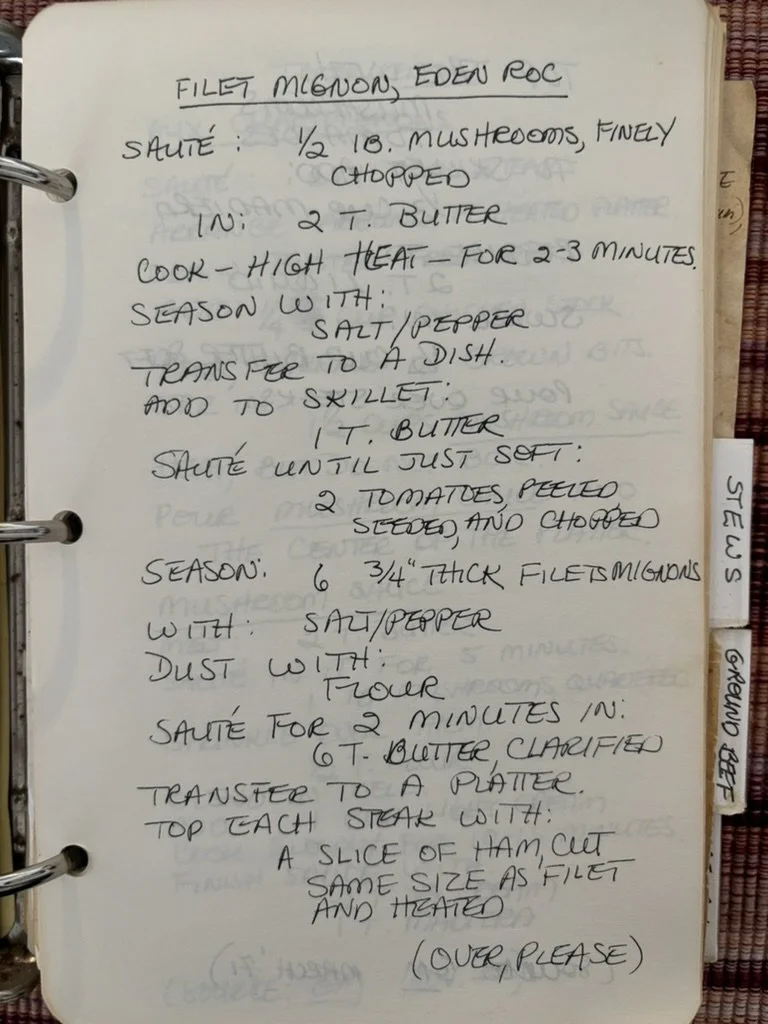 FILET MIGNON, EDEN ROC
SAUTÉ: 1/2 lB. MUSHROOMS, FINELY
CHOPPED
IN: 2 T. BUTTER
COOK - HIGH HEAT - FOR 2-3 MINUTES.
SEASON WITH:
SALT/PEPPER
TRANSFER TO A DISH.
ADD TO SKILLET:
1 T. BUTTER
SAUTÉ UNTIL JUST SOFT:
2 TOMATOES, PEELED
SEEDED, AND CHOPPED
SEASON: 6 3/4" THICK FILETS MIGNONS
WITH: SALT/PEPPER
DUST WITH:
FLOUR
SAUTÉ FOR 2 MINUTES IN:
6 T. BUTTER, CLARIFIED
TRANSFER TO A PLATTER.
TOP EACH STEAK WITH:
A SLICE OF HAM, CUT
SAME SIZE AS FILET
AND HEATED
(OVER, PLEASE)
STEWS
GROUND BEEF